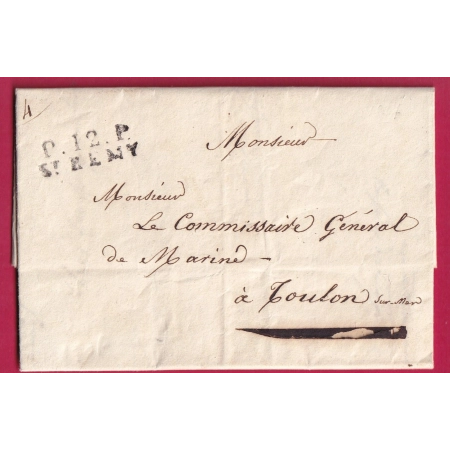 P. 12. P.
St REMY
Monsieur
Monsieur
Le Commissaire Général
de Marine
à Toulon Sur-Mer